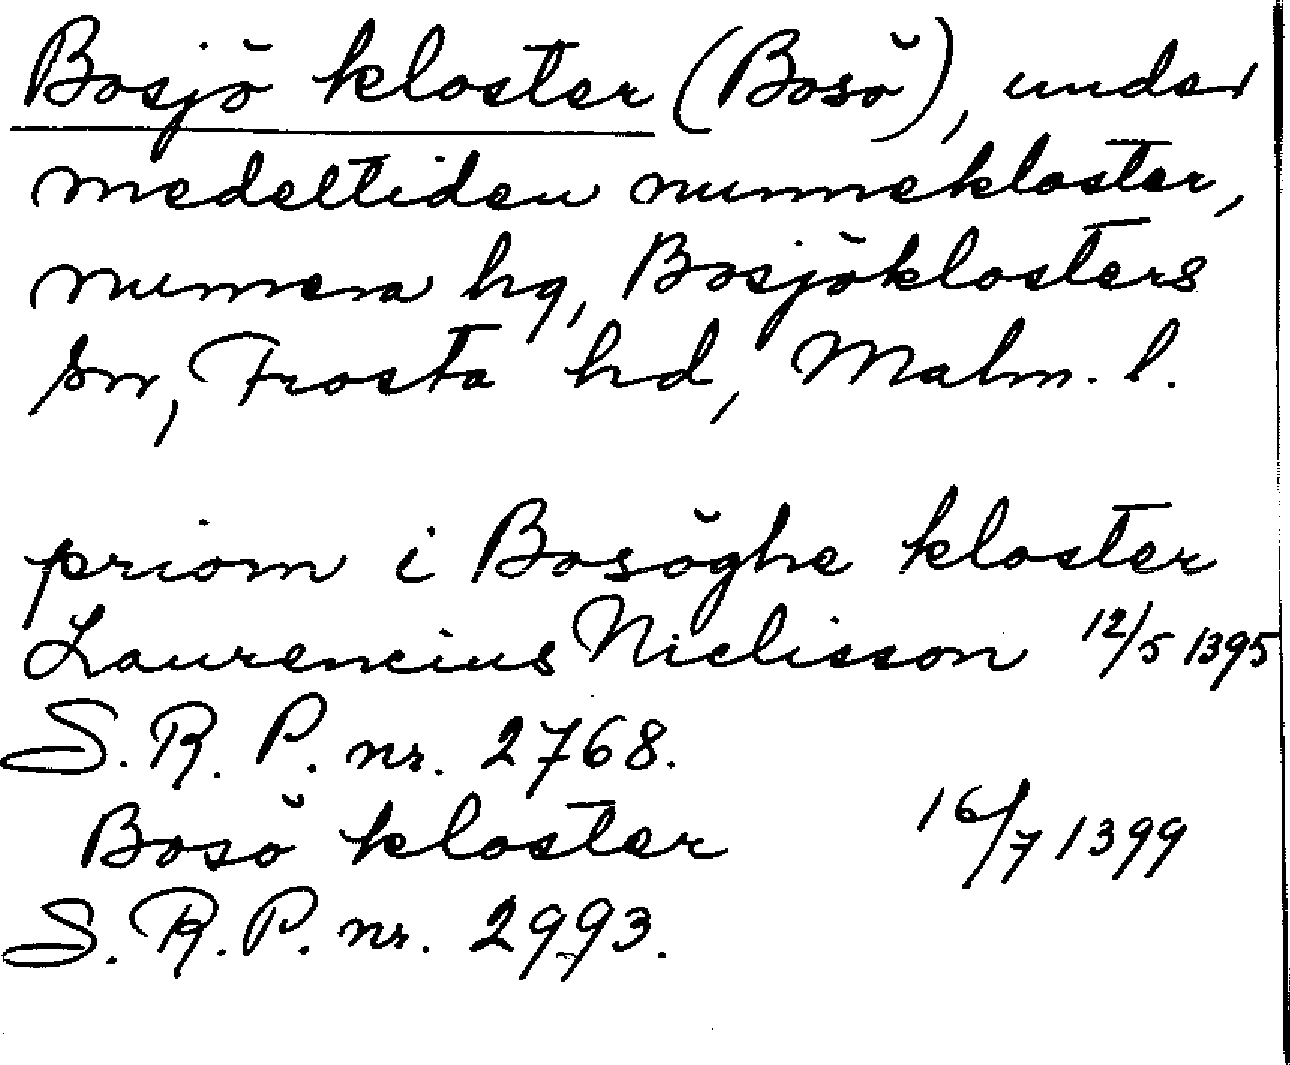 Bosjö kloster (Bosö), under
medeltiden nunnekloster,
numera hg, Bosjöklosters
sn, Frosta hd, Malm. l.
priorn i Bosöghe kloster
Laurencius Nielisson 12/5 1395
S. R. P. nr. 2768.
Bosö kloster 16/7 1399
S. R. P. nr. 2993.